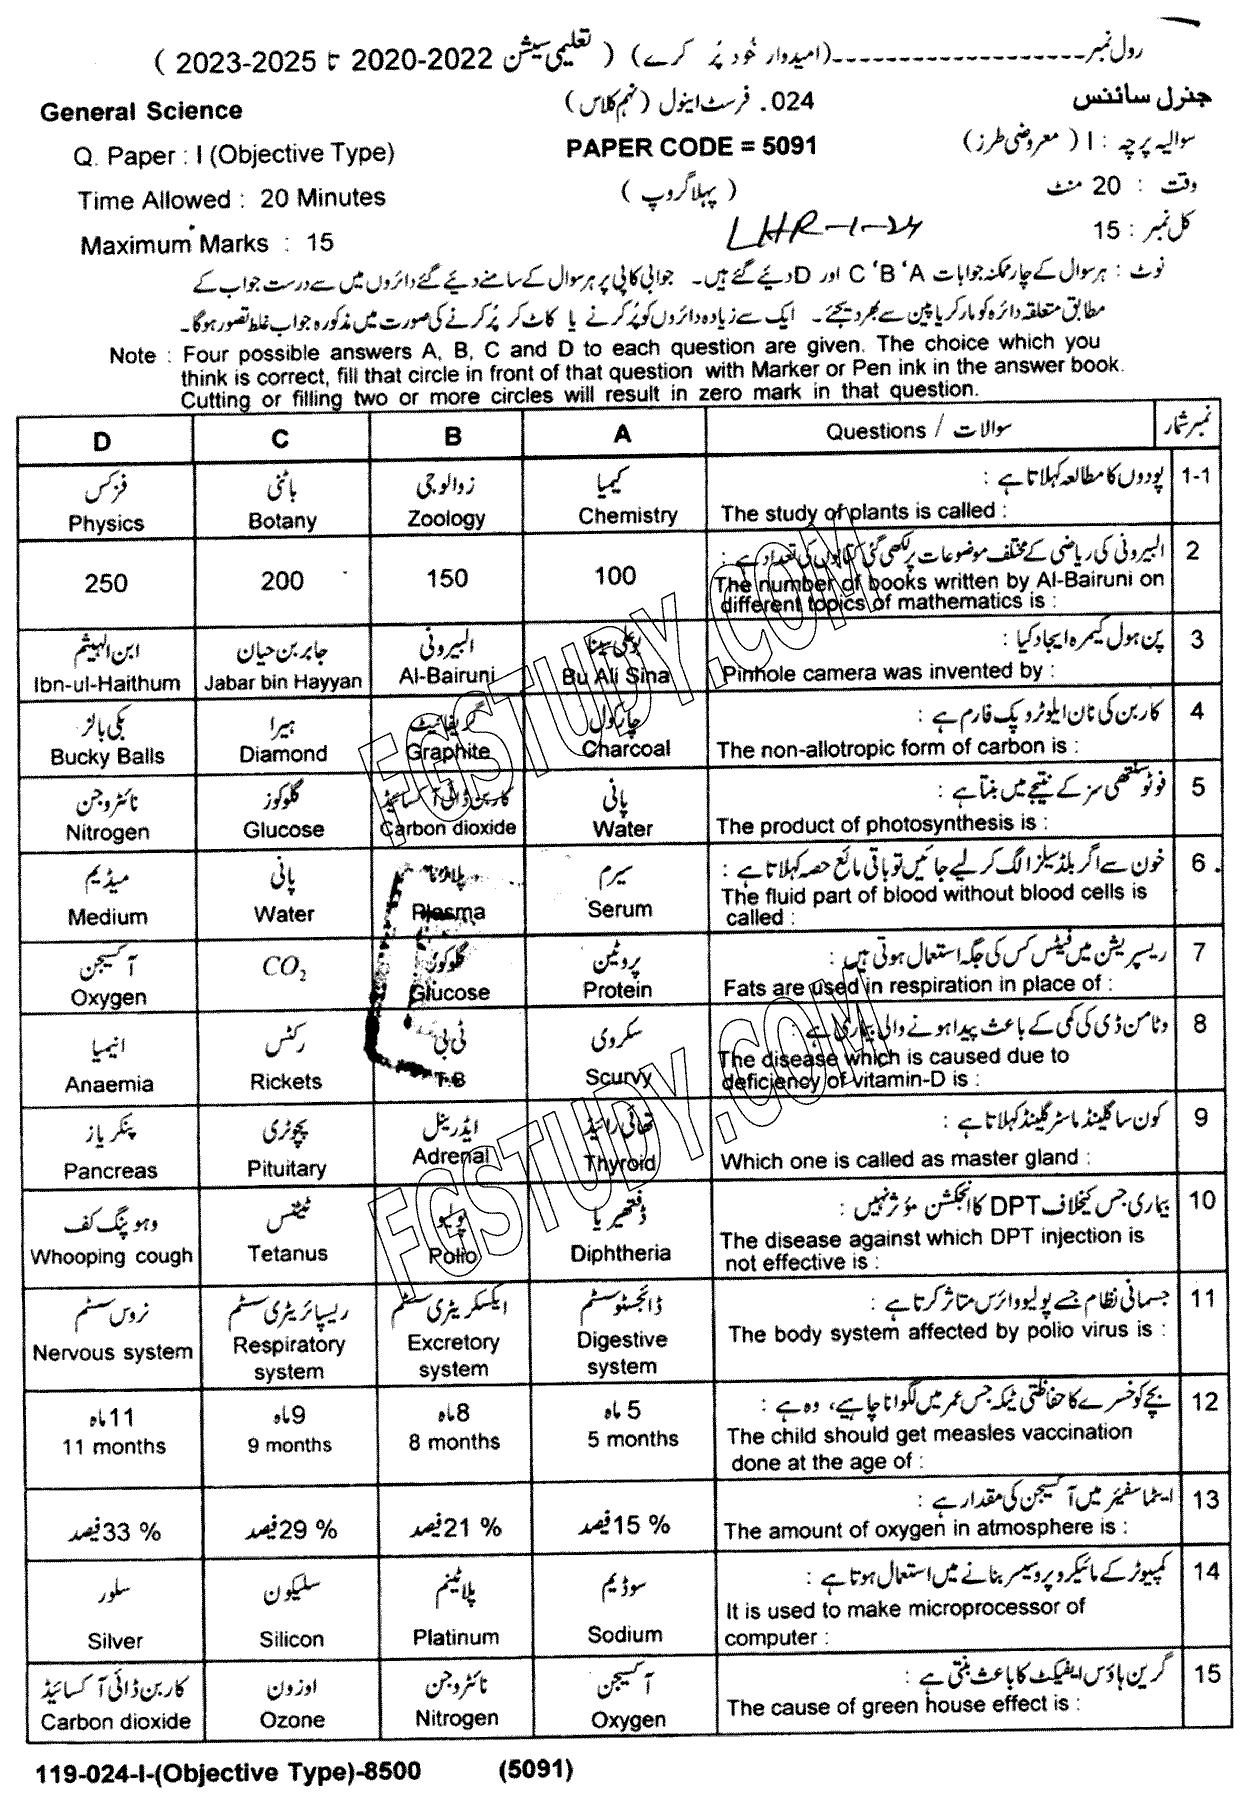 رول نمبر--------------------(امیدوار خُود پُر کرے) ( تعلیمی سیشن 2022-2020 تا 2025-2023 )
General Science
024. فرسٹ اینول (نہم کلاس)
جنرل سائنس
Q. Paper : I (Objective Type)
PAPER CODE = 5091
سوالیہ پرچہ : I ( معروضی طرز)
Time Allowed : 20 Minutes
( پہلا گروپ )
وقت : 20 منٹ
Maximum Marks : 15
LHR-1-24
کل نمبر : 15
نوٹ : ہر سوال کے چار ممکنہ جوابات C 'B 'A اور D دیئے گئے ہیں۔ جوابی کاپی پر ہر سوال کے سامنے دیئے گئے دائروں میں سے درست جواب کے
مطابق متعلقہ دائرہ کو مارکر یا پین سے بھر دیجئے۔ ایک سے زیادہ دائروں کو پُر کرنے یا کاٹ کر پُر کرنے کی صورت میں مذکورہ جواب غلط تصور ہوگا۔
Note : Four possible answers A, B, C and D to each question are given. The choice which you
think is correct, fill that circle in front of that question with Marker or Pen ink in the answer book.
Cutting or filling two or more circles will result in zero mark in that question.
D C B A Questions / سوالات نمبر شمار
فزکس باٹنی زوالوجی کیمیا پودوں کا مطالعہ کہلاتا ہے : 1-1
Physics Botany Zoology Chemistry The study of plants is called :
البیرونی کی ریاضی کے مختلف موضوعات پر لکھی گئی کتابوں کی تعداد ہے : 2
250 200 150 100 The number of books written by Al-Bairuni on
different topics of mathematics is :
ابن الہیثم جابر بن حیان البیرونی بوعلی سینا پن ہول کیمرہ ایجاد کیا : 3
Ibn-ul-Haithum Jabar bin Hayyan Al-Bairuni Bu Ali Sina Pinhole camera was invented by :
بکی بالز ہیرا گریفائیٹ چارکول کاربن کی نان ایلوٹروپک فارم ہے : 4
Bucky Balls Diamond Graphite Charcoal The non-allotropic form of carbon is :
نائٹروجن گلوکوز کاربن ڈائی آکسائیڈ پانی فوٹو سنتھی سز کے نتیجے میں بنتا ہے : 5
Nitrogen Glucose Carbon dioxide Water The product of photosynthesis is :
میڈیم پانی پلازما سیرم خون سے اگر بلڈ سیلز الگ کر لیے جائیں تو باقی مائع حصہ کہلاتا ہے : 6
Medium Water Plasma Serum The fluid part of blood without blood cells is
called :
آکسیجن CO₂ گلوکوز پروٹین ریسپریشن میں فیٹس کس کی جگہ استعمال ہوتی ہیں : 7
Oxygen Glucose Protein Fats are used in respiration in place of :
انیمیا رکٹس ٹی بی سکروی وٹامن ڈی کی کمی کے باعث پیدا ہونے والی بیماری ہے : 8
Anaemia Rickets T.B Scurvy The disease which is caused due to
deficiency of vitamin-D is :
پنکریاز پچوٹری ایڈرینل تھائی رائیڈ کون سا گلینڈ ماسٹر گلینڈ کہلاتا ہے : 9
Pancreas Pituitary Adrenal Thyroid Which one is called as master gland :
وہوپنگ کف ٹیٹنس پولیو ڈفتھیریا بیماری جس کیخلاف DPT کا انجکشن مؤثر نہیں : 10
Whooping cough Tetanus Polio Diphtheria The disease against which DPT injection is
not effective is :
نروس سسٹم ریسپائریٹری سسٹم ایکسکریٹری سسٹم ڈائجسٹو سسٹم جسمانی نظام جسے پولیو وائرس متاثر کرتا ہے : 11
Nervous system Respiratory system Excretory system Digestive system The body system affected by polio virus is :
11 ماہ 9 ماہ 8 ماہ 5 ماہ بچے کو خسرے کا حفاظتی ٹیکہ جس عمر میں لگوانا چاہیے، وہ ہے : 12
11 months 9 months 8 months 5 months The child should get measles vaccination
done at the age of :
ایٹماسفیئر میں آکسیجن کی مقدار ہے : 13
33 % فیصد 29 % فیصد 21 % فیصد 15 % فیصد The amount of oxygen in atmosphere is :
سلور سلیکون پلاٹینم سوڈیم کمپیوٹر کے مائیکرو پروسیسر بنانے میں استعمال ہوتا ہے : 14
Silver Silicon Platinum Sodium It is used to make microprocessor of
computer :
کاربن ڈائی آکسائیڈ اوزون نائٹروجن آکسیجن گرین ہاؤس ایفیکٹ کا باعث بنتی ہے : 15
Carbon dioxide Ozone Nitrogen Oxygen The cause of green house effect is :
119-024-I-(Objective Type)-8500 (5091)
FGSTUDY.COM
FGSTUDY.COM